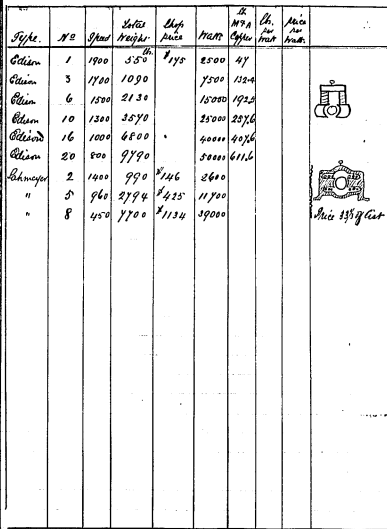 Type. No Speed Total Weight. Shop price Watts lb M & A Copper lb. per Watt price per Watt.
lb.
Edison 1 1900 550 $175 2500 47
Edison 3 1700 1090 7500 132.4
Edison 6 1500 2130 15000 192.5
Edison 10 1300 3570 25000 257.6
Edison 16 1000 6800 40000 407.6
Edison 20 800 9790 50000 611.6
Lahmeyer 2 1400 990 $146 2600
" 5 960 2794 $425 11700
" 8 450 7700 $1134 39000 Price 33% of list